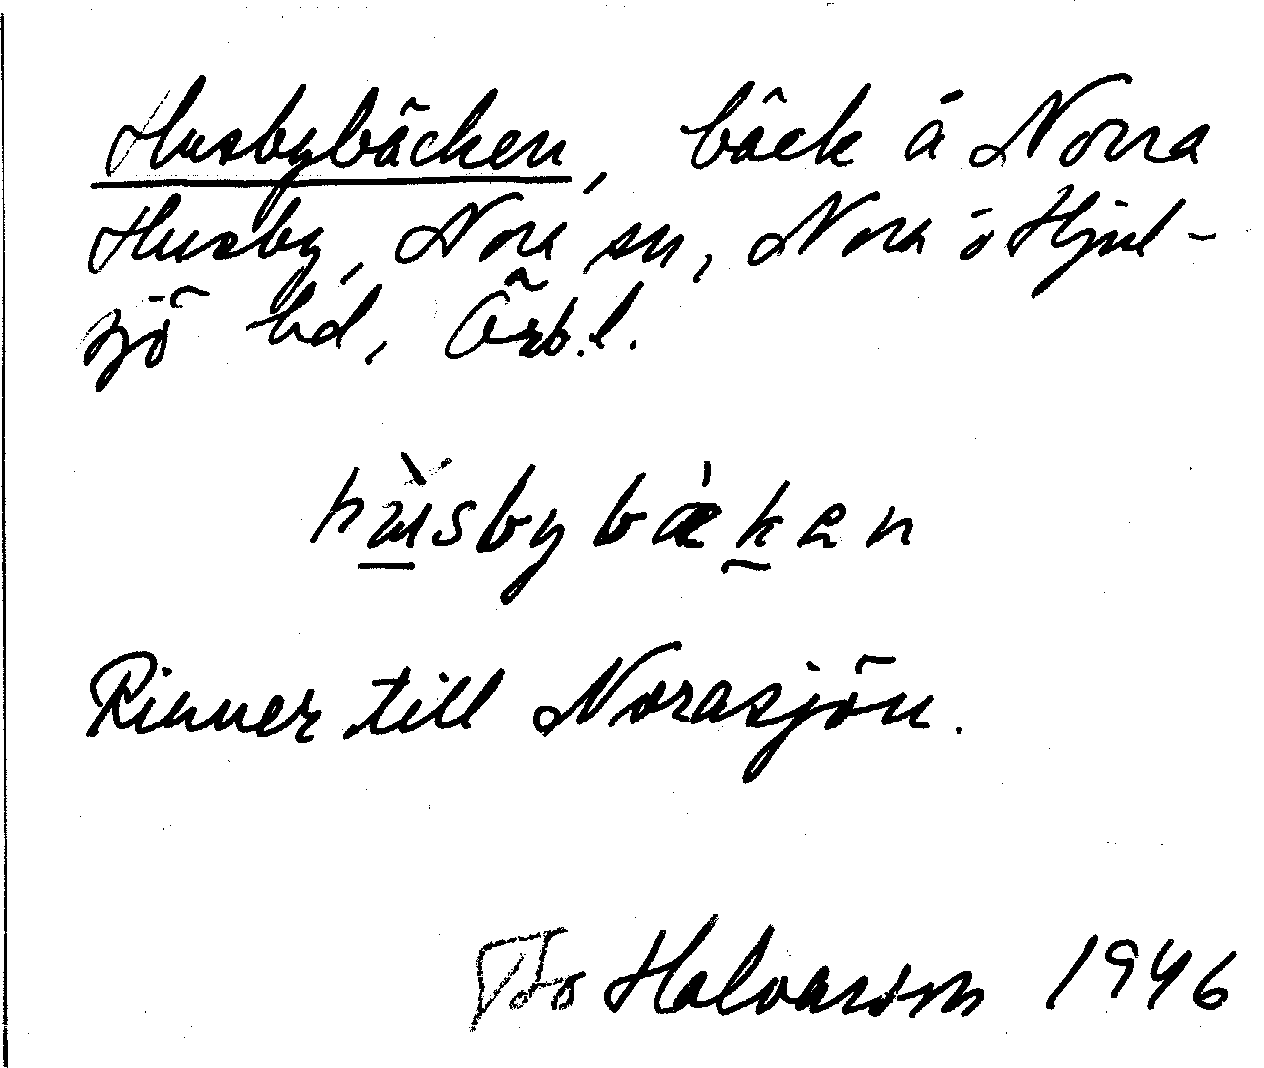 Husbybäcken, bäck å Norra
Husby, Nora sn, Nora o Hjul-
sjö bd, Örb.l.
hùsbybækan
Rinner till Norasjön.
Halvarson 1946